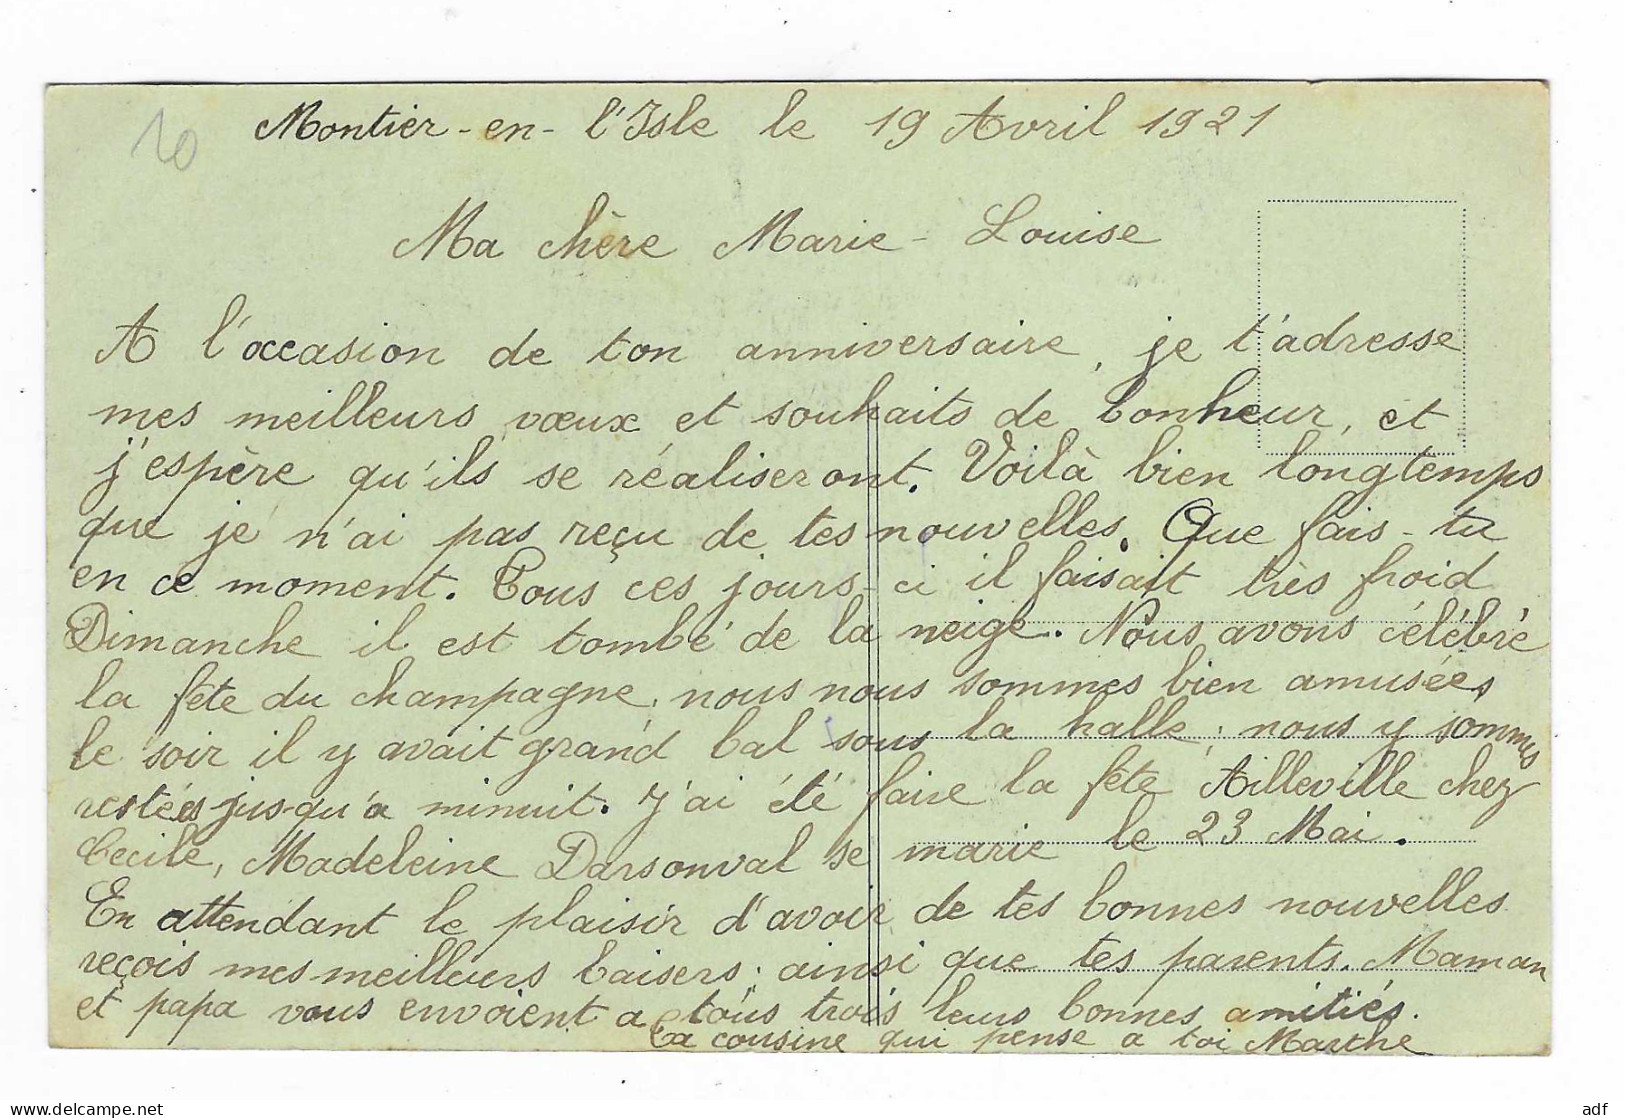 10
Montier-en-l'Isle le 19 Avril 1921
Ma chère Marie-Louise
A l'occasion de ton anniversaire, je t'adresse
mes meilleurs vœux et souhaits de bonheur, et
j'espère qu'ils se réaliseront. Voilà bien longtemps
que je n'ai pas reçu de tes nouvelles. Que fais-tu
en ce moment. Tous ces jours-ci il faisait très froid
Dimanche il est tombé de la neige. Nous avons célébré
la fête du champagne, nous nous sommes bien amusées,
le soir il y avait grand bal sous la halle, nous y sommes
restées jusqu'a minuit. J'ai été faire la fête Ailleville chez
Cécile, Madeleine Darsonval se marie le 23 Mai.
En attendant le plaisir d'avoir de tes bonnes nouvelles
reçois mes meilleurs baisers, ainsi que tes parents. Maman
et papa vous envoient a tous trois leurs bonnes amitiés.
Ta cousine qui pense a toi Marthe
delcampe.net
adf